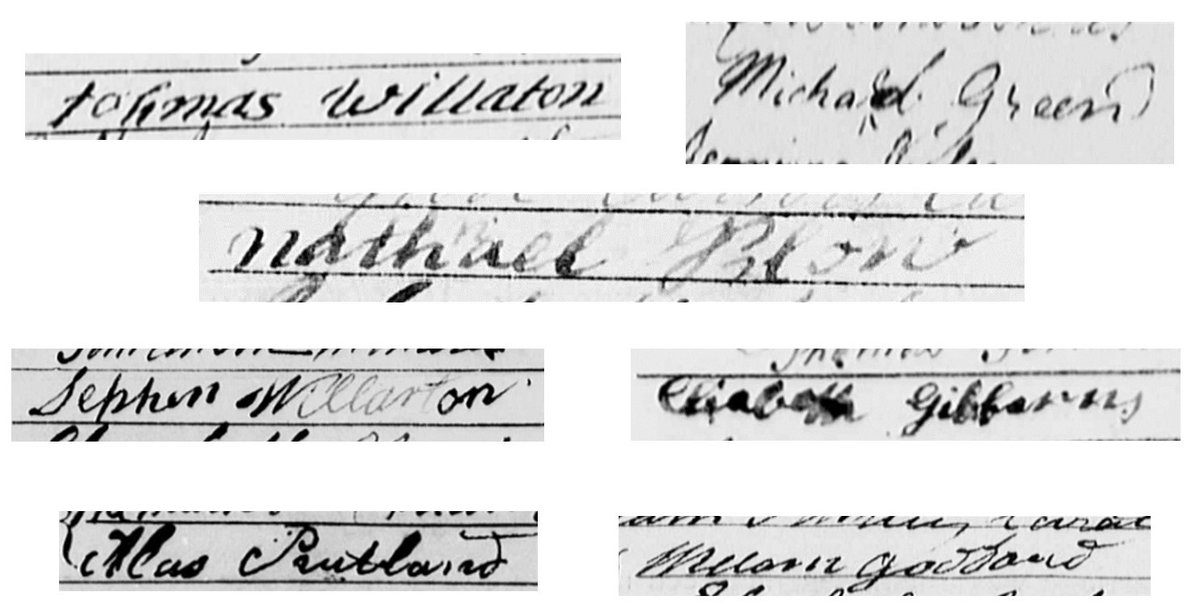 tohmas Willaton
Michael Green
nathael Pilon
Sephen Willarton
Elisabeth Gibbarns
Alas Pentland
Melam Goddard